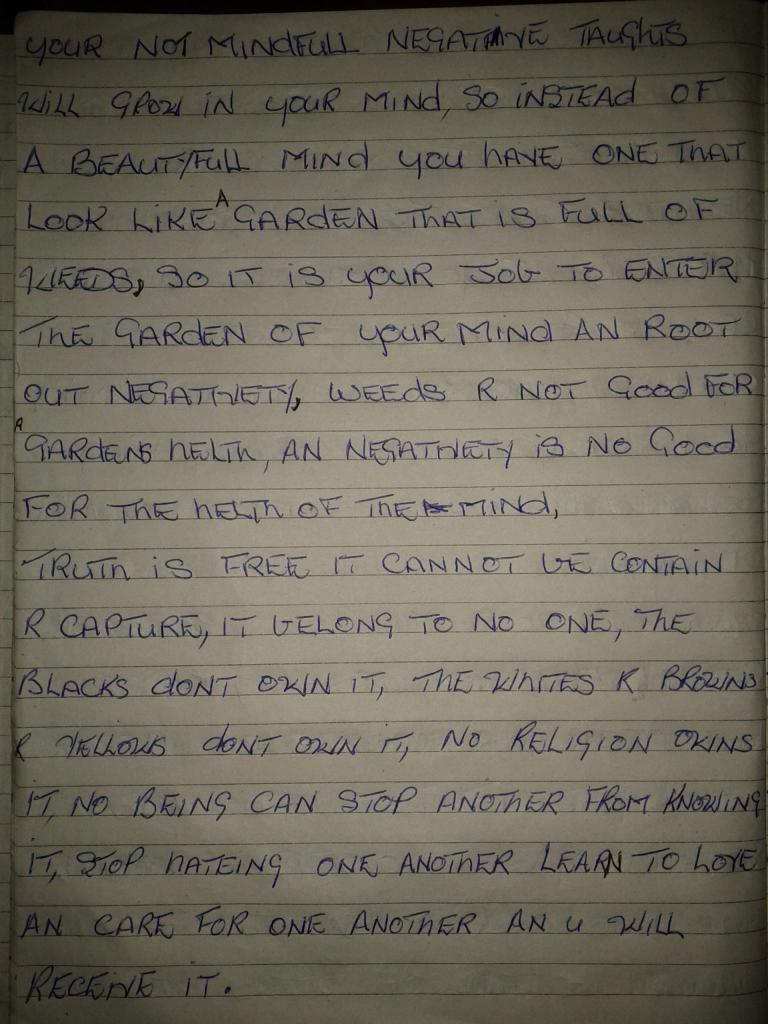 YOUR NOT MINDFULL NEGATIVE TAUGHTS
WILL GROW IN YOUR MIND, SO INSTEAD OF
A BEAUTYFULL MIND YOU HAVE ONE THAT
LOOK LIKE A GARDEN THAT IS FULL OF
WEEDS, SO IT IS YOUR JOB TO ENTER
THE GARDEN OF YOUR MIND AN ROOT
OUT NEGATIVETY, WEEDS R NOT GOOD FOR
A GARDENS HELTH, AN NEGATIVETY IS NO GOOD
FOR THE HELTH OF THE MIND,
TRUTH IS FREE IT CANNOT BE CONTAIN
R CAPTURE, IT BELONG TO NO ONE, THE
BLACKS DONT OWN IT, THE WHITES R BROWNS
R YELLOWS DONT OWN IT, NO RELIGION OWNS
IT, NO BEING CAN STOP ANOTHER FROM KNOWING
IT, STOP HATEING ONE ANOTHER LEARN TO LOVE
AN CARE FOR ONE ANOTHER AN U WILL
RECEIVE IT.